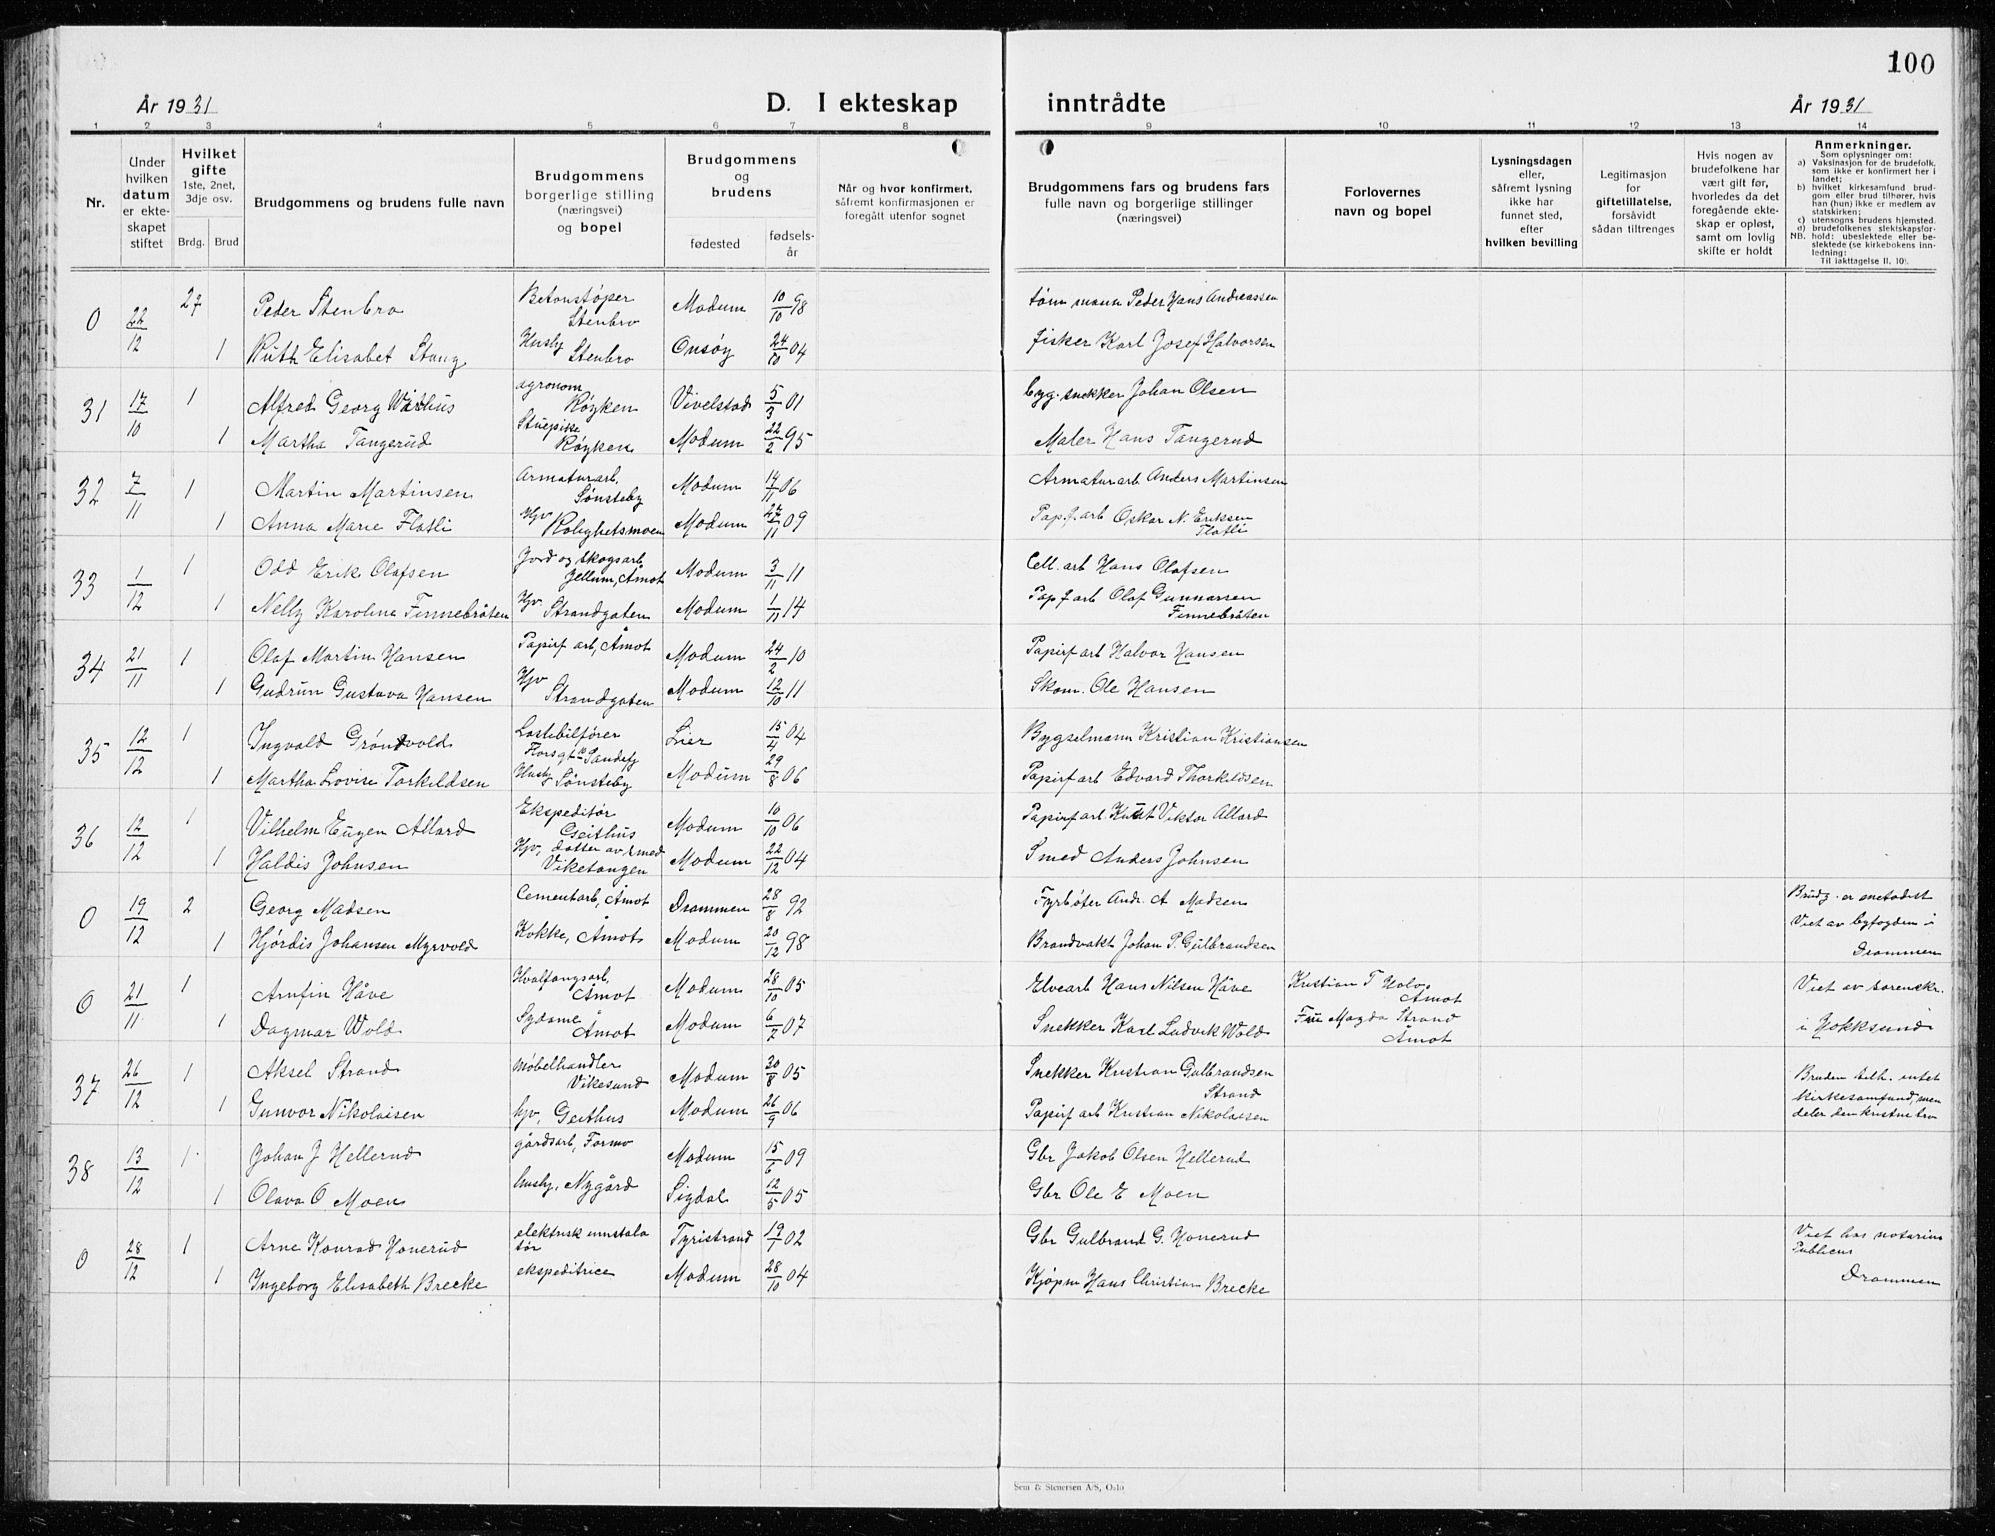 100
År 1931
D. I ekteskap inntrådte
År 1931
1 2 3 4 5 6 7 8 9 10 11 12 13 14
Nr.
Under hvilken datum er ekteskapet stiftet
Hvilket gifte
1ste, 2net, 3dje osv.
Brdg. Brud
Brudgommens og brudens fulle navn
Brudgommens borgerlige stilling (næringsvei) og bopel
Brudgommens og brudens
fødested
fødselsår
Når og hvor konfirmert, såfremt konfirmasjonen er foregått utenfor sognet
Brudgommens fars og brudens fars fulle navn og borgerlige stillinger (næringsvei)
Forlovernes navn og bopel
Lysningsdagen eller, såfremt lysning ikke har funnet sted, efter hvilken bevilling
Legitimasjon for giftetillatelse, forsåvidt sådan tiltrenges
Hvis nogen av brudefolkene har vært gift før, hvorledes da det foregående ekteskap er opløst, samt om lovlig skifte er holdt
Anmerkninger.
Som oplysninger om:
a) Vaksinasjon for de brudefolk, som ikke er konfirmert her i landet;
b) hvilket kirkesamfund brudgom eller brud tilhører, hvis han (hun) ikke er medlem av statskirken;
c) utensogns brudens hjemsted.
d) brudefolkenes slektskapsforhold: ubeslektede eller beslektede (se kirkebokens innledning:
NB.
Til iakttagelse II. 10).
0 22/12 2 Peder Stenbro Betonstøper Stenbro Modum 10/10 98 tøm mann Peder Hans Andreassen
1 Ruth Elisabet Stang Husby Stenbro Onsøy 24/10 04 fisker Karl Josef Halvorsen
31 17/10 1 Alfred Georg Wårhus agronom Røyken Vivelstad 5/3 01 byg. snekker Johan Olsen
1 Martha Tangerud Stuepike Røyken Modum 22/2 95 Maler Hans Tangerud
32 7/11 1 Martin Martinsen Armaturarb. Sønsteby Modum 14/11 06 Armaturarb Anders Martinsen
1 Anna Marie Flatli Hjv Rolighetsmoen Modum 27/11 09 Pap.f. arb Oskar N. Eriksen Flatli
33 1/12 1 Odd Erik Olafsen Jord og skogsarb. Jellum, Åmot Modum 3/11 11 Cell. arb Hans Olafsen
1 Nelly Karoline Finnebråten Hjv Strandgaten Modum 1/11 14 Pap f arb Olaf Gunnarsen Finnebråten
34 21/11 1 Olaf Martin Hansen Papirf arb, Åmot Modum 24/2 10 Papirf arb Halvor Hansen
1 Gudrun Gustava Hansen Hjv Strandgaten Modum 12/10 11 Skom. Ole Hansen
35 12/12 1 Ingvald Grøndvold Lastebilfører Sandefj Lier 15/4 04 Bygselmann Kristian Kristiansen
1 Martha Lovise Torkildsen Husby Sønsteby Modum 29/8 06 Papirf arb Edvard Thorkildsen
36 12/12 1 Vilhelm Eugen Allard Ekspeditør Geithus Modum 10/10 06 Papirf arb Knut Viktor Allard
1 Haldis Johnsen Hjv, datter av smed Viketangen Modum 22/12 04 Smed Anders Johnsen
0 19/12 2 Georg Madsen Cementarb, Åmot Drammen 28/8 92 Fyrbøter Andr. A Madsen Brudg. er metodist
1 Hjørdis Johansen Myrvold Kokke, Åmot Modum 20/12 98 Brandvakt Johan P. Gulbrandsen Viet av byfogden i Drammen
0 21/11 1 Arnfin Håve Hvalfangsarb, Åmot Modum 28/10 05 Elvearb Hans Nilsen Håve Kristian T Holv. Åmot Viet av sorenskr.
1 Dagmar Wold Sydame Åmot Modum 6/7 07 Snekker Karl Ludvik Wold Fru Magda Strand Åmot i Hokksund
37 26/12 1 Aksel Strand Møbelhandler Vikesund Modum 30/8 05 Snekker Kristian Gulbrandsen Strand Bruden tilh. intet
1 Gunvor Nikolaisen hjv, Geithus Modum 26/9 06 Papirf arb Kristian Nikolaisen kirkesamfund, men deler den kristne tro
38 13/12 1 Johan J Hellerud gårdsarb, Formo Modum 15/6 09 Gbr Jakob Olsen Hellerud
1 Olava O. Moen husby, Nygård Sigdal 12/5 05 Gbr Ole E Moen
0 28/12 1 Arne Konrad Honerud elektrisk innstalatør Tyristrand 19/1 02 Gbr Gulbrand G. Honerud Viet hos notarius Publicus
1 Ingeborg Elisabeth Brecke ekspeditrice Modum 28/10 04 Kjøpm Hans Christian Brecke Drammen
Sem & Stenersen A/S, Oslo